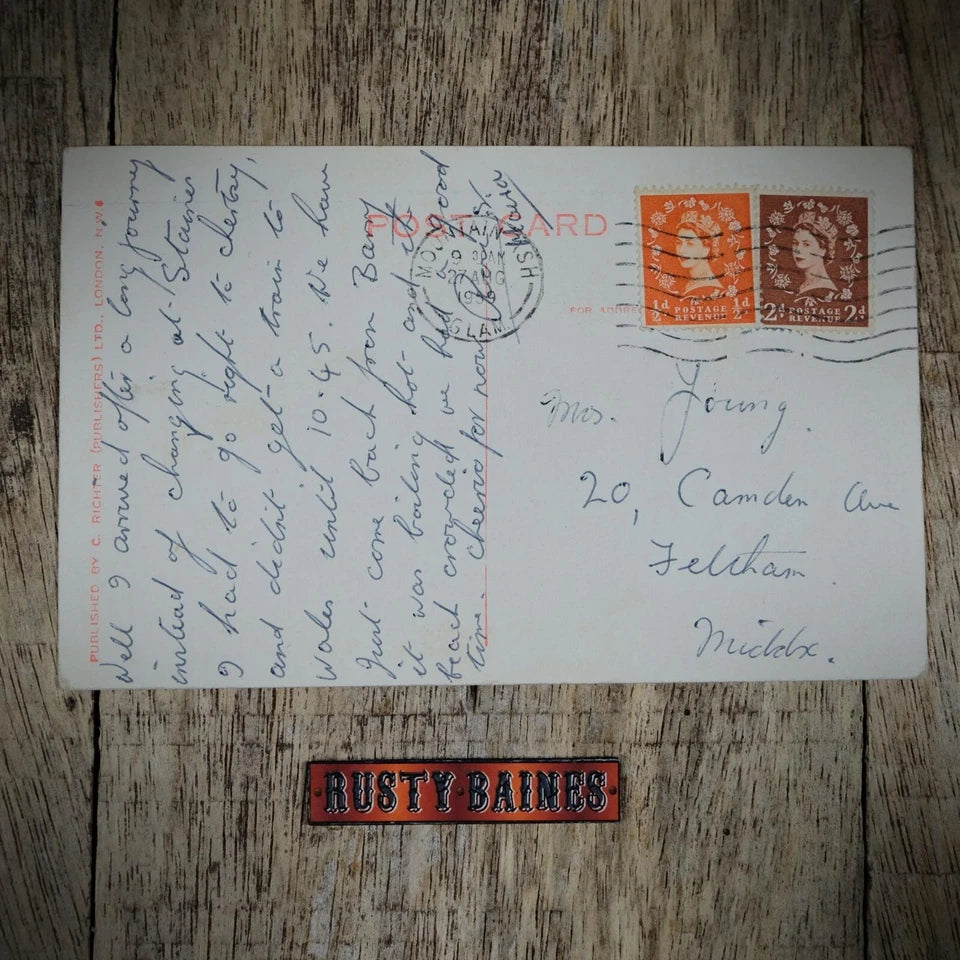 PUBLISHED BY C. RICHTER (PUBLISHERS) LTD., LONDON, N.W.6
POST CARD
FOR ADDRESS
Well I arrived after a long journey
instead of changing at Staines
I had to go right to Chertsey,
and didnt get a train to
Wales until 10.45. We have
just come back from Barry
it was boiling hot and the
beach crowded we had a good
time. Cheerio for now
MOUNTAIN ASH
GLAM
27 AUG
19
1/2d 1/2d
POSTAGE
REVENUE
2d 2d
POSTAGE
REVENUE
Mrs. Young.
20, Camden Ave
Feltham.
Middx.
RUSTY BAINES